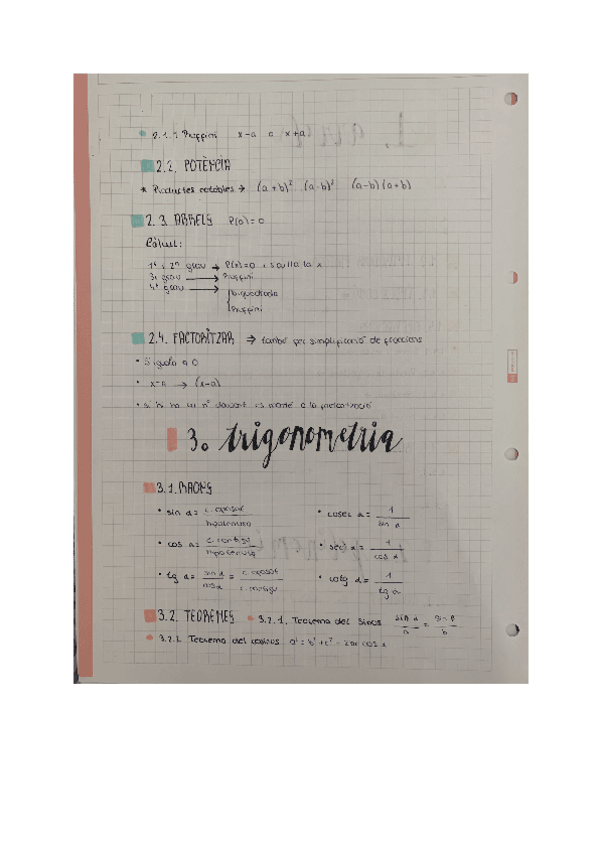 2.1.1 Ruffini x-a o x+a
2.2. POTÈNCIA
* Productes notables → (a+b)² (a-b)² (a-b)(a+b)
2.3. ARRELS P(x)=0
Càlcul:
1r i 2n grau → P(x)=0 i s'aïlla la x
3r grau → Ruffini
4t grau → Biquadrada
Ruffini
2.4. FACTORITZAR ⇒ també per simplificació de fraccions
• S'iguala a 0
• x=a → (x-a)
• si hi ha un nº davant es manté a la factorització
3. trigonometria
3.1. RAONS
• sin α = c. oposat / hipotenusa • cosec α = 1 / sin α
• cos α = c. contigu / hipotenusa • sec α = 1 / cos α
• tg α = sin α / cos α = c. oposat / c. contigu • cotg α = 1 / tg α
3.2. TEOREMES • 3.2.1. Teorema del sinus sin α / a = sin β / b
• 3.2.2. Teorema del cosinus a² = b² + c² - 2bc cos α